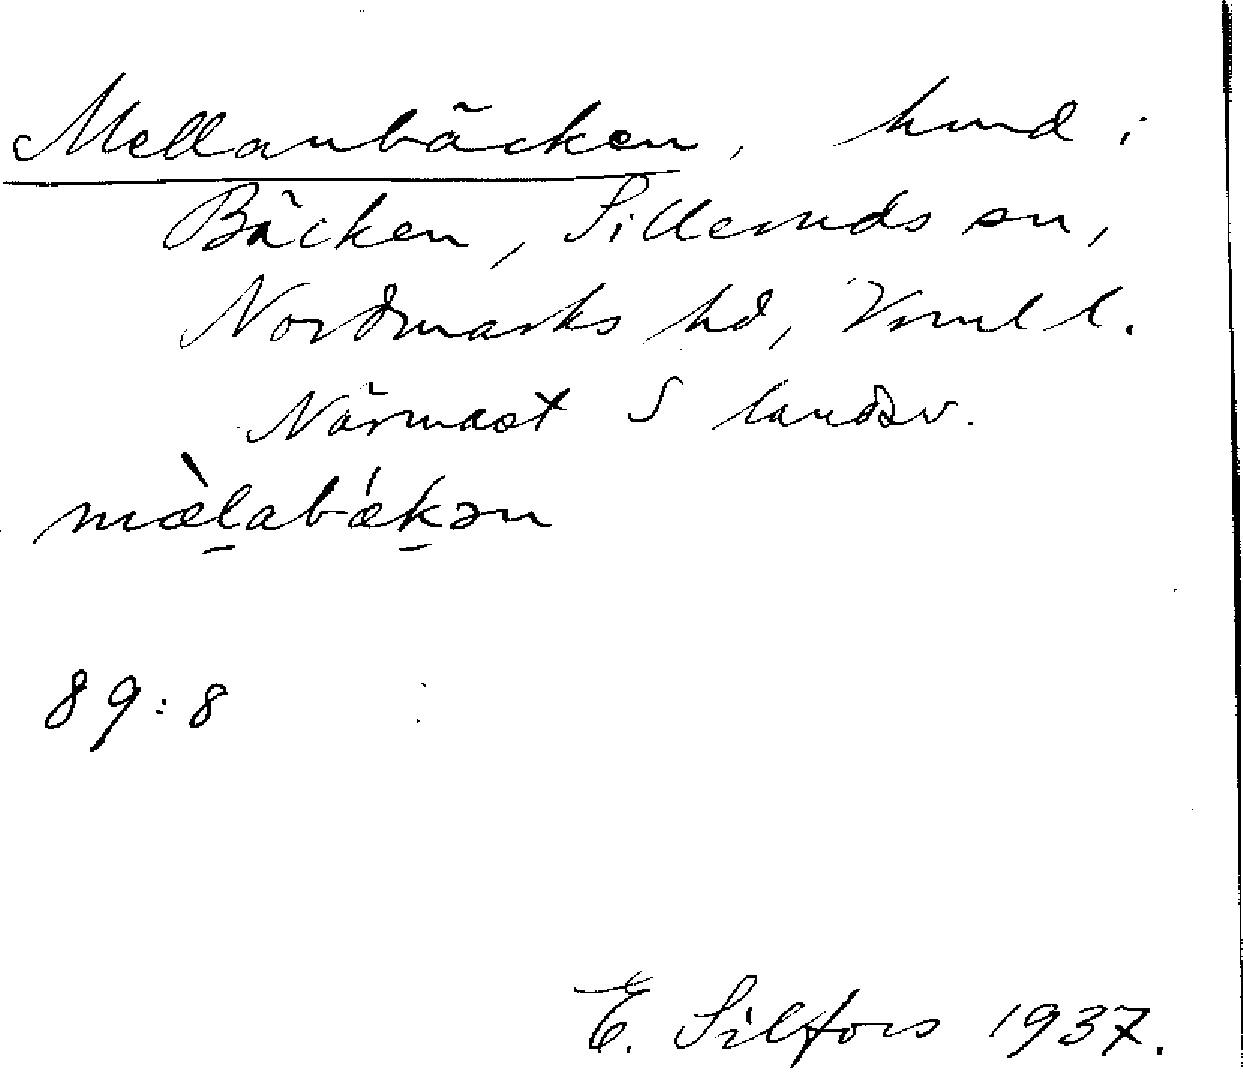 Mellanbäcken, hmd i
Bäcken, Silleruds sn,
Nordmarks hd, Vrml l.
Närmast S landsv.
mæ̀l̠abǽk̠ən
89:8
E. Silfors 1937.